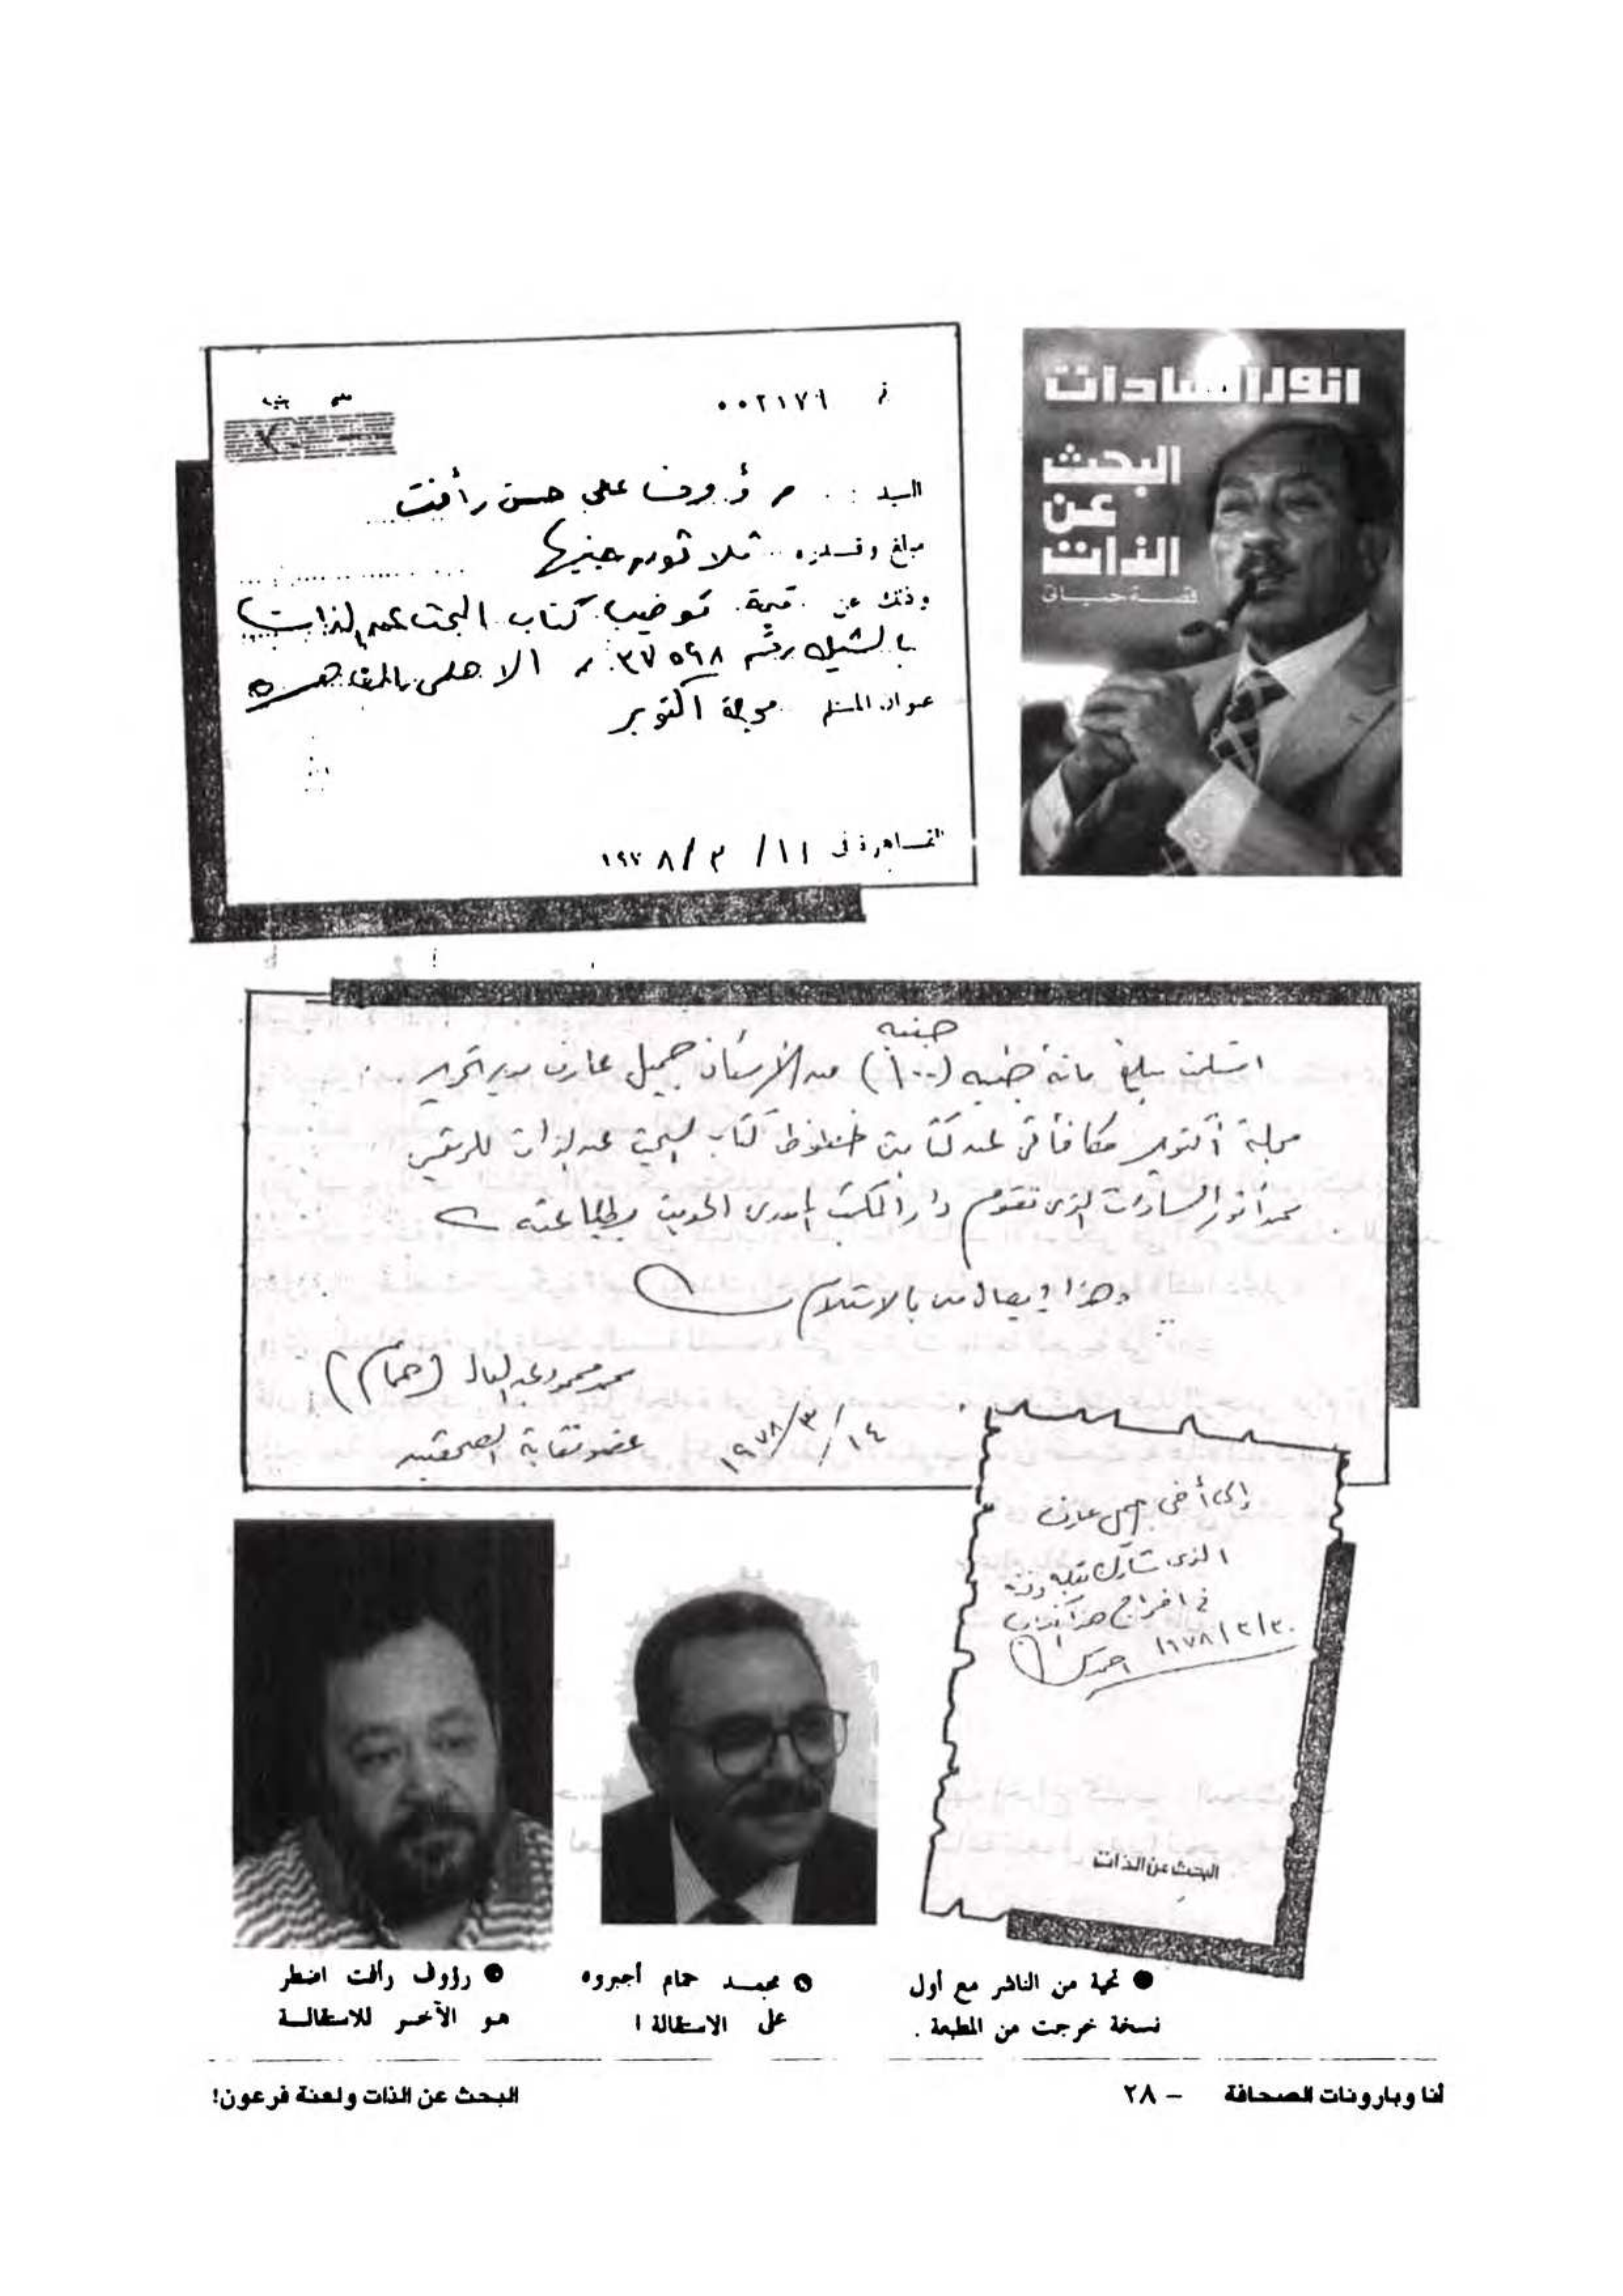 انور السادات
البحث
عن
الذات
قصة حياتى
٠٠٢١٧٦
السيد : رؤوف على حسن رأفت
مبلغ وقدره ثلاثون جنيها
وذلك عن قيمة توضيب كتاب البحث عن الذات
بالشيك رقم ٣٧٥٩٨ الاهلى بالقاهرة
عنوان المستلم مجلة اكتوبر
القاهرة فى ١١/ ٣/ ١٩٧٨
جنيه
استلمت مبلغ مائة جنيه (١٠٠) من الأستاذ جميل عارف مدير تحرير
مجلة أكتوبر مكافأتى عن كتابة خطوط كتاب البحث عن الذات للرئيس
محمد أنور السادات الذى تقوم دار المكتب المصرى الحديث بطباعته
وهذا إيصال منى بالاستلام
محمد محمود عبد العال (حمام)
عضو نقابة الصحفيين
١٤/ ٣/ ١٩٧٨
إلى أخى جميل عارف
الذى شارك بقلبه وفنه
فى اخراج هذا الكتاب
٣٠/٣/١٩٧٨ احمد
البحث عن الذات
● تحية من الناشر مع أول
نسخة خرجت من المطبعة .
● محمد حمام أجبروه
على الاستقالة !
● رؤوف رأفت اضطر
هو الآخر للاستقالة
أنا وبارونات الصحافة – ٢٨
البحث عن الذات ولعنة فرعون!